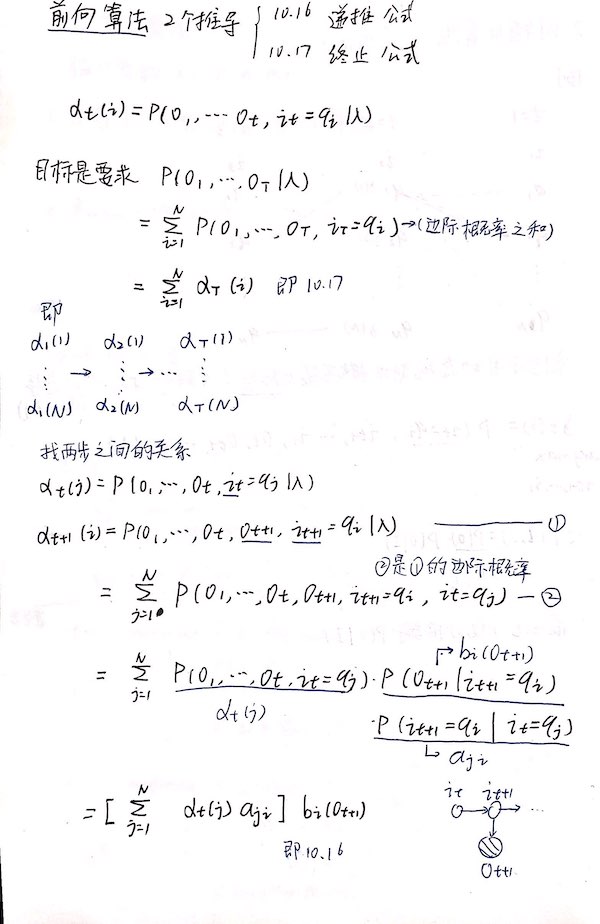 前向算法 2个推导 { 10.16 递推公式
10.17 终止公式
αt(i) = P(O1, ⋯ Ot, it = qi |λ)
目标是要求 P(O1, ⋯, OT |λ)
= Σ_{i=1}^{N} P(O1, ⋯, OT, iT = qi) → (边际概率之和)
= Σ_{i=1}^{N} αT(i) 即 10.17
即
α1(1) α2(1) αT(1)
⋮ → ⋮ → ⋯ ⋮
α1(N) α2(N) αT(N)
找两步之间的关系
αt(j) = P(O1, ⋯, Ot, it = qj |λ)
αt+1(i) = P(O1, ⋯, Ot, Ot+1, it+1 = qi |λ) —— ①
②是①的边际概率
= Σ_{j=1}^{N} P(O1, ⋯, Ot, Ot+1, it+1 = qi, it = qj) — ②
↱ bi(Ot+1)
= Σ_{j=1}^{N} P(O1, ⋯, Ot, it = qj) · P(Ot+1 | it+1 = qi)
αt(j)
· P(it+1 = qi | it = qj)
↳ aji
= [ Σ_{j=1}^{N} αt(j) aji ] bi(Ot+1)
即10.16
it it+1
→ → ⋯
Ot+1